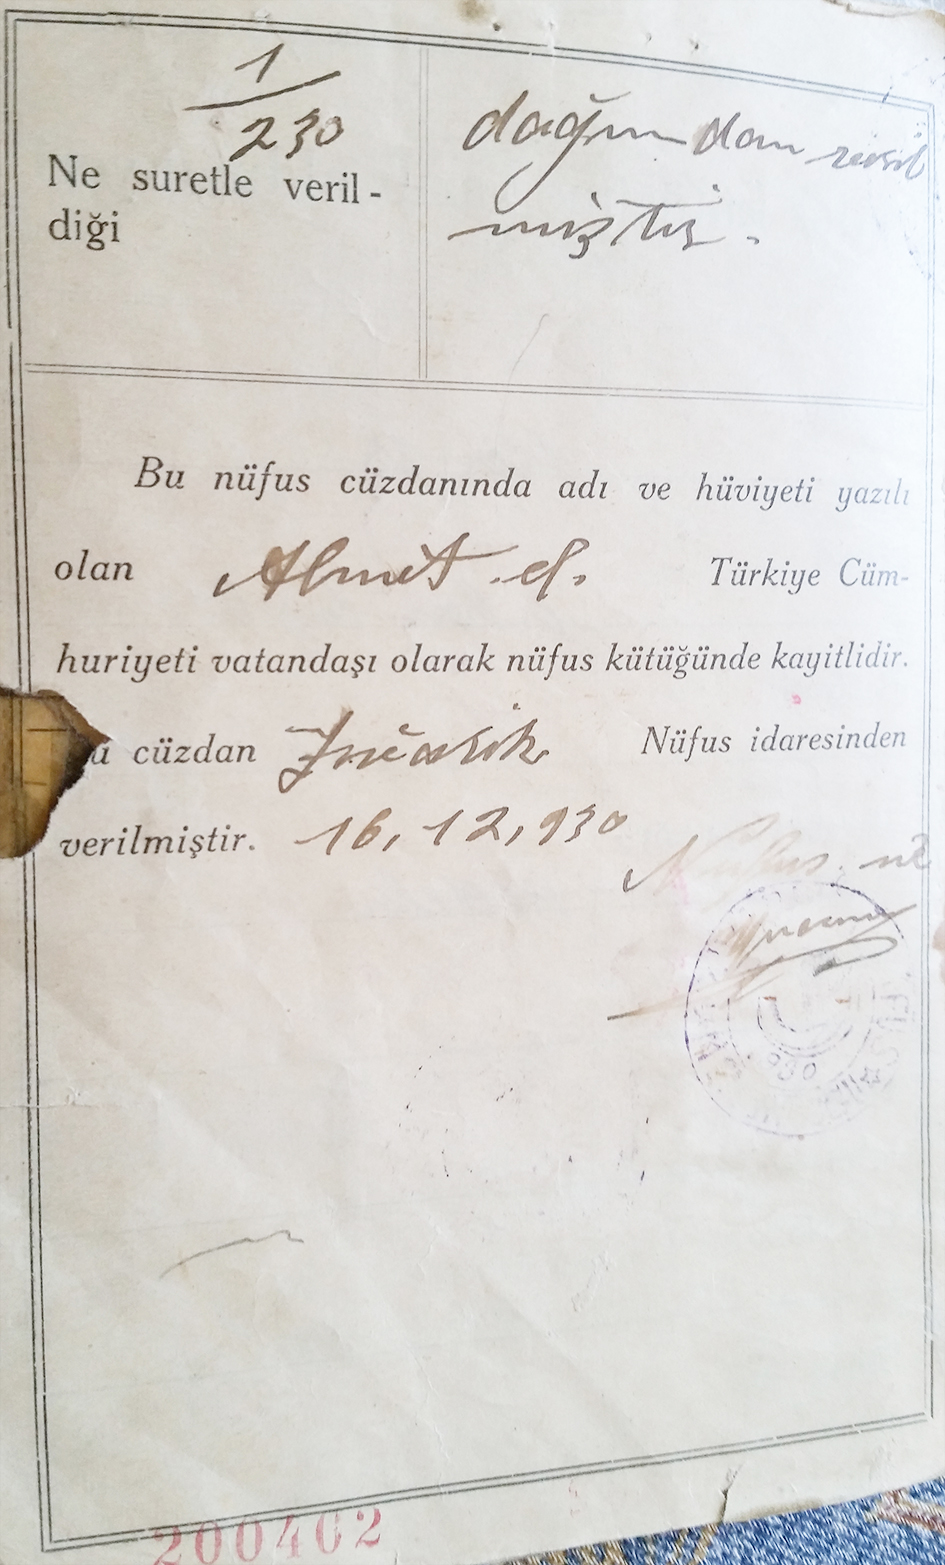 1
230
Ne suretle veril-
diği
dağından
miştir.
Bu nüfus cüzdanında adı ve hüviyeti yazılı
olan Ahmet ef. Türkiye Cüm-
huriyeti vatandaşı olarak nüfus kütüğünde kayitlidir.
cüzdan Nüfus idaresinden
verilmiştir. 16, 12, 930
930
200402